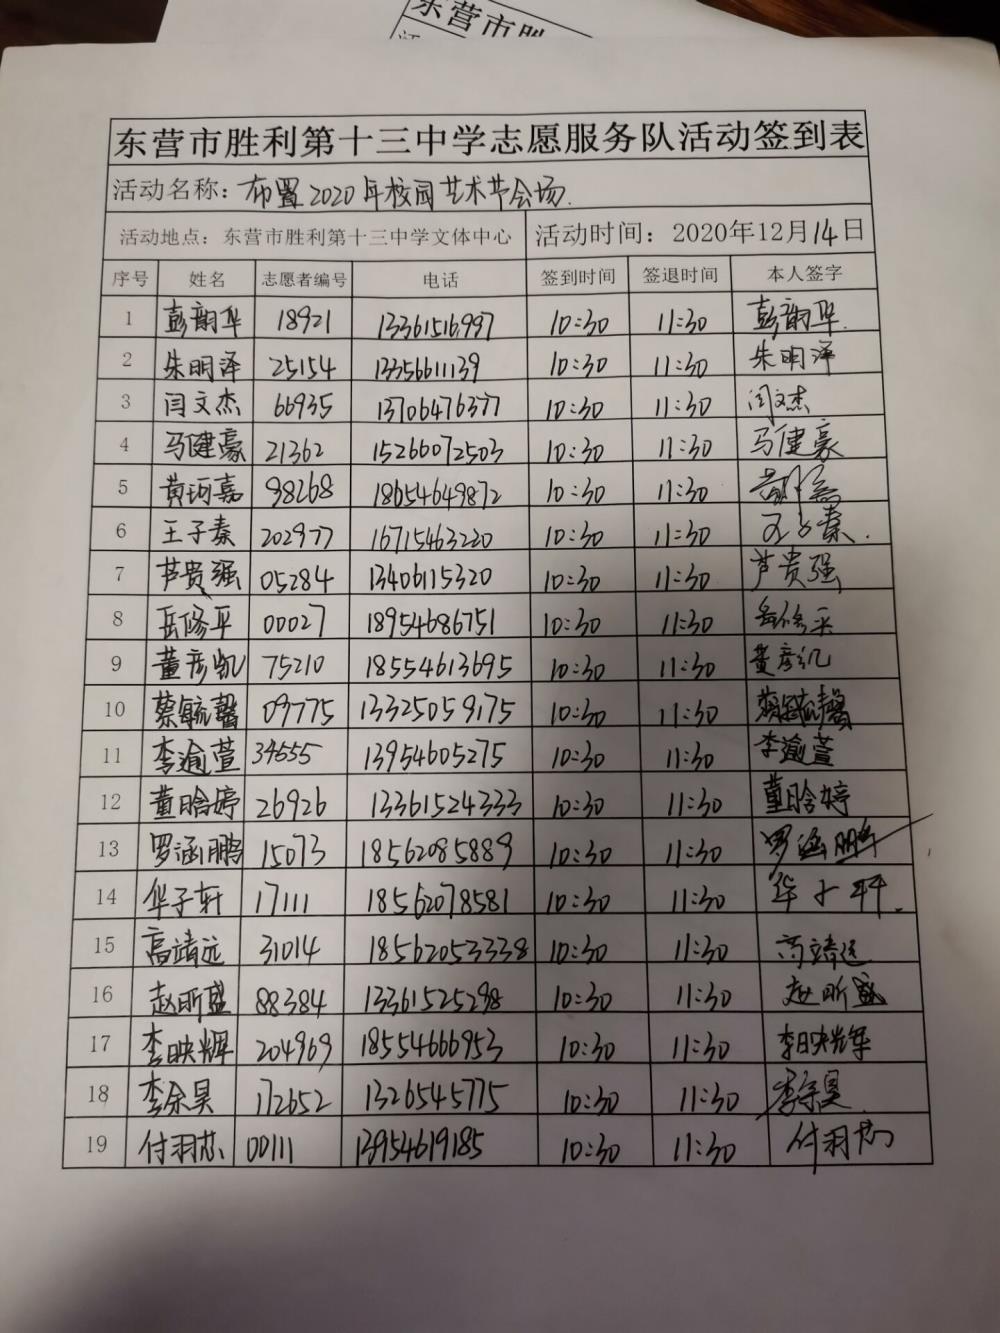 东营市胜
东营市胜利第十三中学志愿服务队活动签到表
活动名称：布置2020年校园艺术节会场.
活动地点：东营市胜利第十三中学文体中心 活动时间：2020年12月14日
序号 姓名 志愿者编号 电话 签到时间 签退时间 本人签字
1 彭韵华 18921 13361516997 10:30 11:30 彭韵华
2 朱明泽 25154 13356611139 10:30 11:30 朱明泽
3 闫文杰 66935 13706476377 10:30 11:30 闫文杰
4 马健豪 21362 15266072503 10:30 11:30 马健豪
5 黄珂嘉 98268 18654649872 10:30 11:30
6 王子秦 202977 16715463220 10:30 11:30 王子秦.
7 芦贵强 05284 13406115320 10:30 11:30 芦贵强
8 岳修平 00027 18954686751 10:30 11:30 岳修平
9 董彦凯 75210 18554613695 10:30 11:30 董彦凯
10 蔡毓馨 09775 13325059175 10:30 11:30 蔡毓馨
11 李逾萱 34555 13954605275 10:30 11:30 李逾萱
12 董晗婷 26926 13361524333 10:30 11:30 董晗婷
13 罗涵鹏 15073 18562085889 10:30 11:30 罗涵鹏
14 华子轩 17111 18562078581 10:30 11:30 华子轩.
15 高靖远 31014 18562053338 10:30 11:30 高靖远
16 赵昕盛 88384 13361525298 10:30 11:30 赵昕盛
17 李映辉 204969 18554666953 10:30 11:30 李映辉
18 李余昊 172652 1326545775 10:30 11:30 李余昊
19 付羽芯 00111 13954619185 10:30 11:30 付羽芯